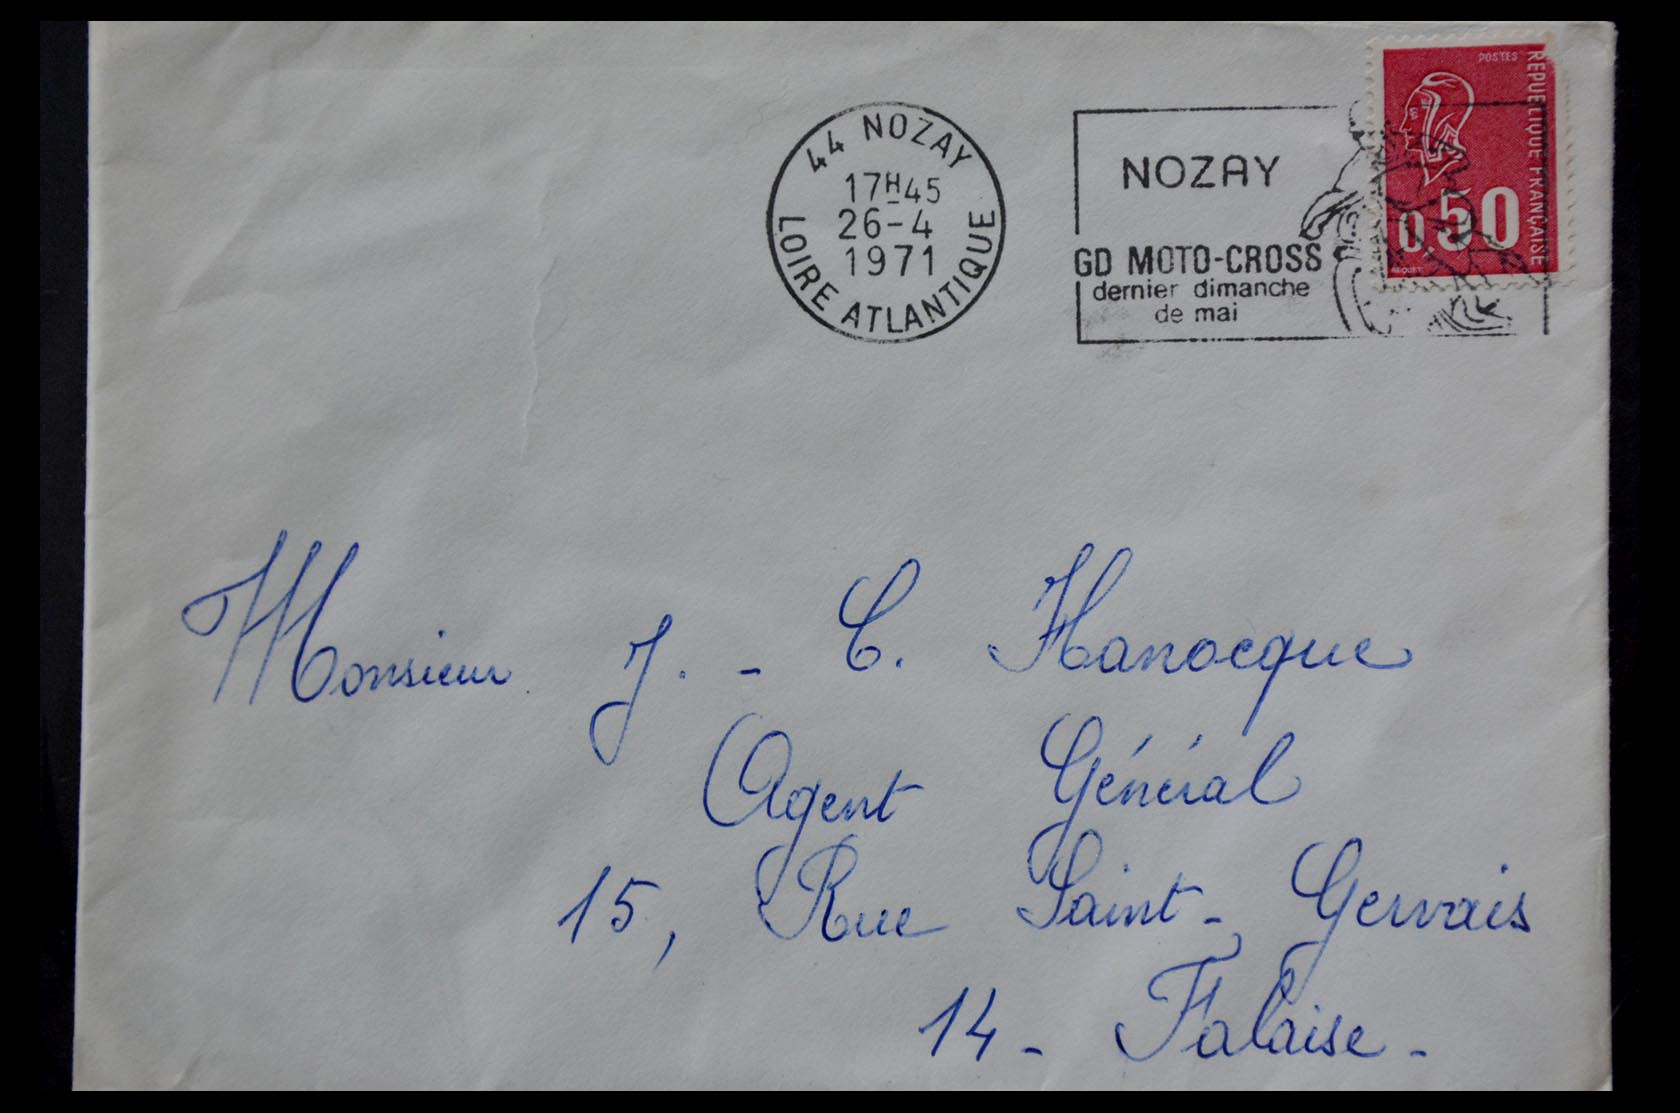 44 NOZAY
17H45
26-4
1971
LOIRE ATLANTIQUE
NOZAY
GD MOTO-CROSS
dernier dimanche
de mai
POSTES
REPUBLIQUE FRANÇAISE
0,50
BEQUET
Monsieur J.-C. Hanocque
Agent Général
15, Rue Saint-Gervais
14 - Falaise -